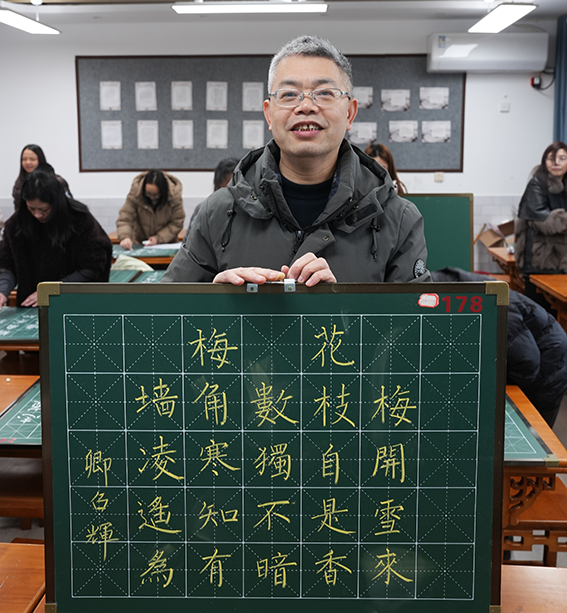 178
梅花
墙角數枝梅
凌寒獨自開
遙知不是雪
為有暗香來
卿 輝